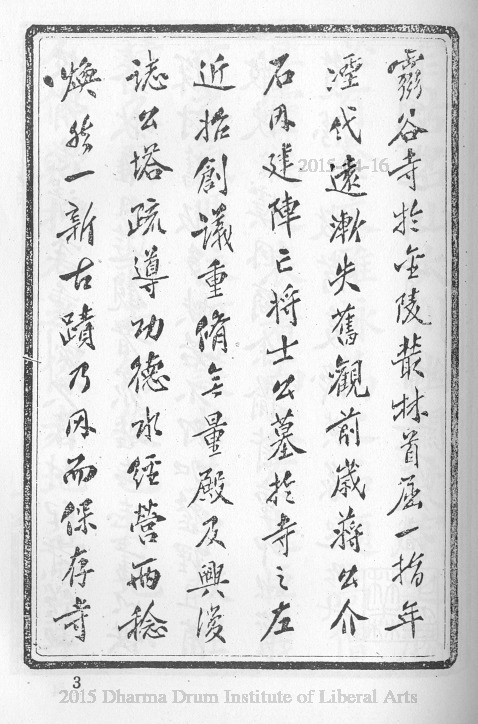 靈谷寺於金陵叢林首屈一指年
湮代遠漸失舊觀前歲蔣公介
石因建陣亡將士公墓於寺之左
近招創議重脩無量殿及興復
誌公塔疏導功德水經營兩稔
煥然一新古蹟乃因而保存寺
3
2015-04-16
2015 Dharma Drum Institute of Liberal Arts